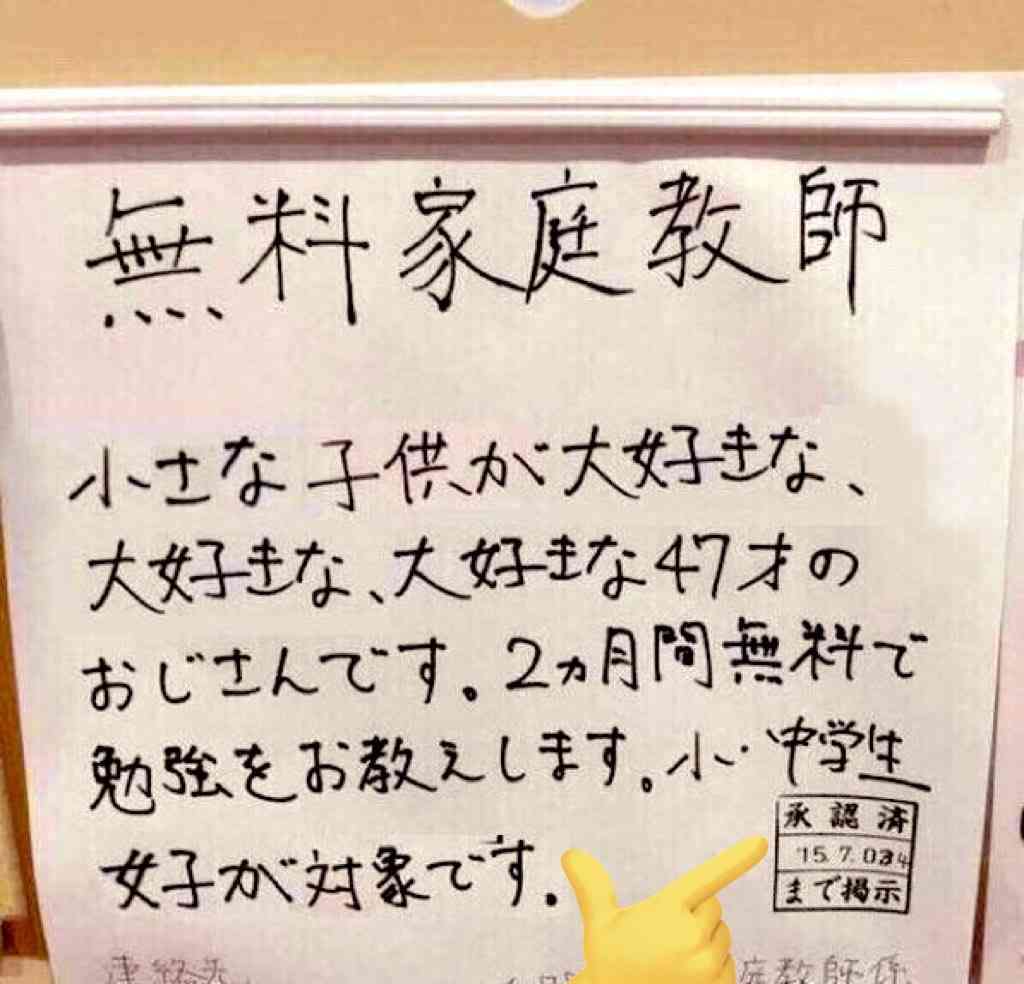 無料家庭教師
小さな子供が大好きな、
大好きな、大好きな47才の
おじさんです。2ヵ月間無料で
勉強をお教えします。小・中学生
女子が対象です。
承認済
まで掲示
連絡先
庭教師係